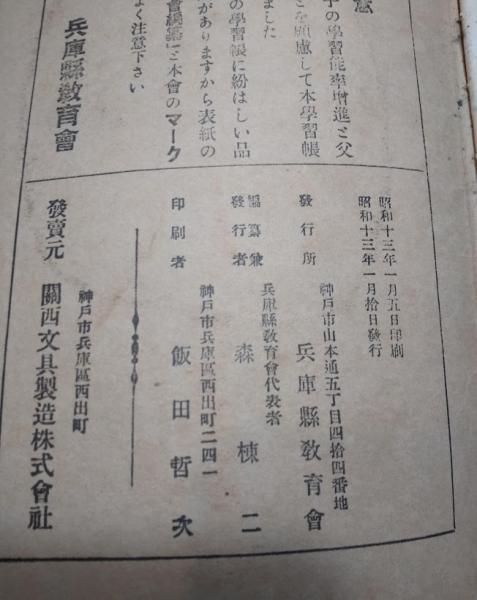 意
子の學習能率增進と父
とを顧慮して本學習帳
ました
の學習帳に紛はしい品
がありますから表紙の
會編纂」と本會のマーク
よく注意下さい
兵庫縣敎育會
昭和十三年一月五日印刷
昭和十三年一月拾日發行
發行所
神戶市山本通五丁目四拾四番地
兵庫縣敎育會
編纂兼
發行者
兵庫縣敎育會代表者
森棟二
印刷者
神戶市兵庫區西出町二四一
飯田哲次
發賣元
神戶市兵庫區西出町
關西文具製造株式會社